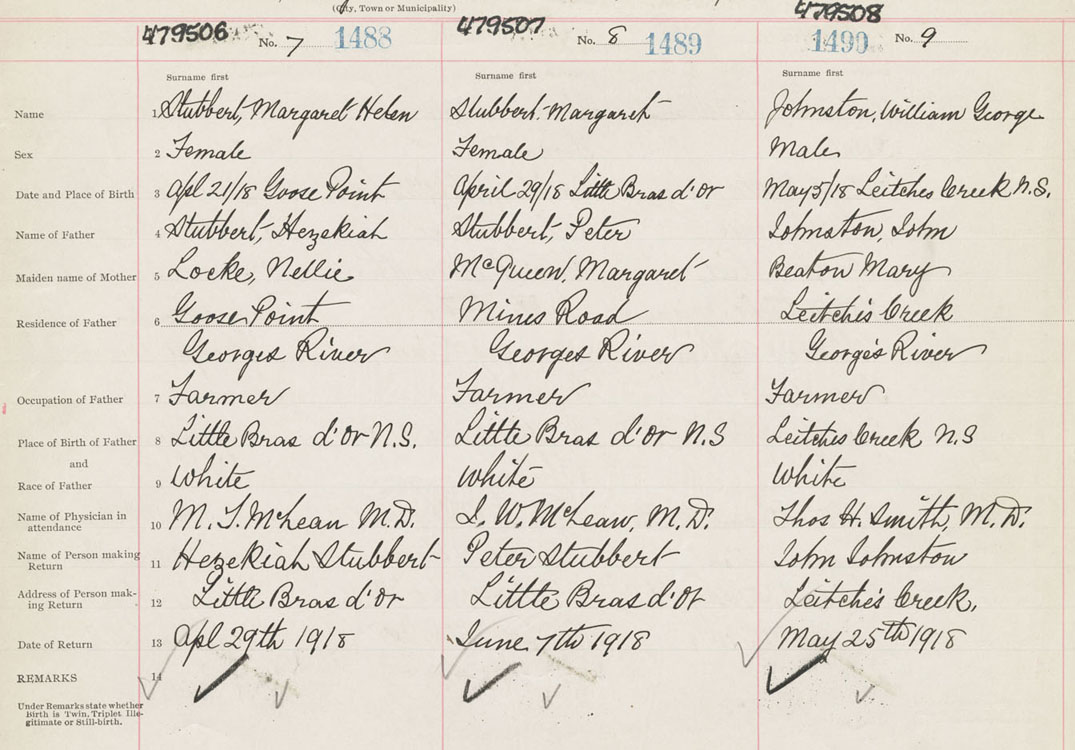 (City, Town or Municipality)
479506 No. 7 1488 479507 No. 8 1489 479508 1490 No. 9
Surname first Surname first Surname first
Name 1 Stubbert, Margaret Helen Stubbert, Margaret Johnston, William George
Sex 2 Female Female Male
Date and Place of Birth 3 Apl 21/18 Goose Point April 29/18 Little Bras d'Or May 5/18 Leitches Creek N.S.
Name of Father 4 Stubbert, Hezekiah Stubbert, Peter Johnston, John
Maiden name of Mother 5 Locke, Nellie McQueen, Margaret Beaton Mary
Residence of Father 6 Goose Point Mines Road Leitche's Creek
Georges River Georges River George's River
Occupation of Father 7 Farmer Farmer Farmer
Place of Birth of Father 8 Little Bras d'Or N.S. Little Bras d'Or N.S Leitches Creek N.S
and
Race of Father 9 White White White
Name of Physician in attendance 10 M. T. McLean M.D. L. W. McLean, M.D. Thos H. Smith, M.D.
Name of Person making Return 11 Hezekiah Stubbert Peter Stubbert John Johnston
Address of Person mak-ing Return 12 Little Bras d'Or Little Bras d'Or Leitche's Creek.
Date of Return 13 Apl 29th 1918 June 7th 1918 May 25th 1918
REMARKS 14
Under Remarks state whether
Birth is Twin, Triplet Ille-
gitimate or Still-birth.